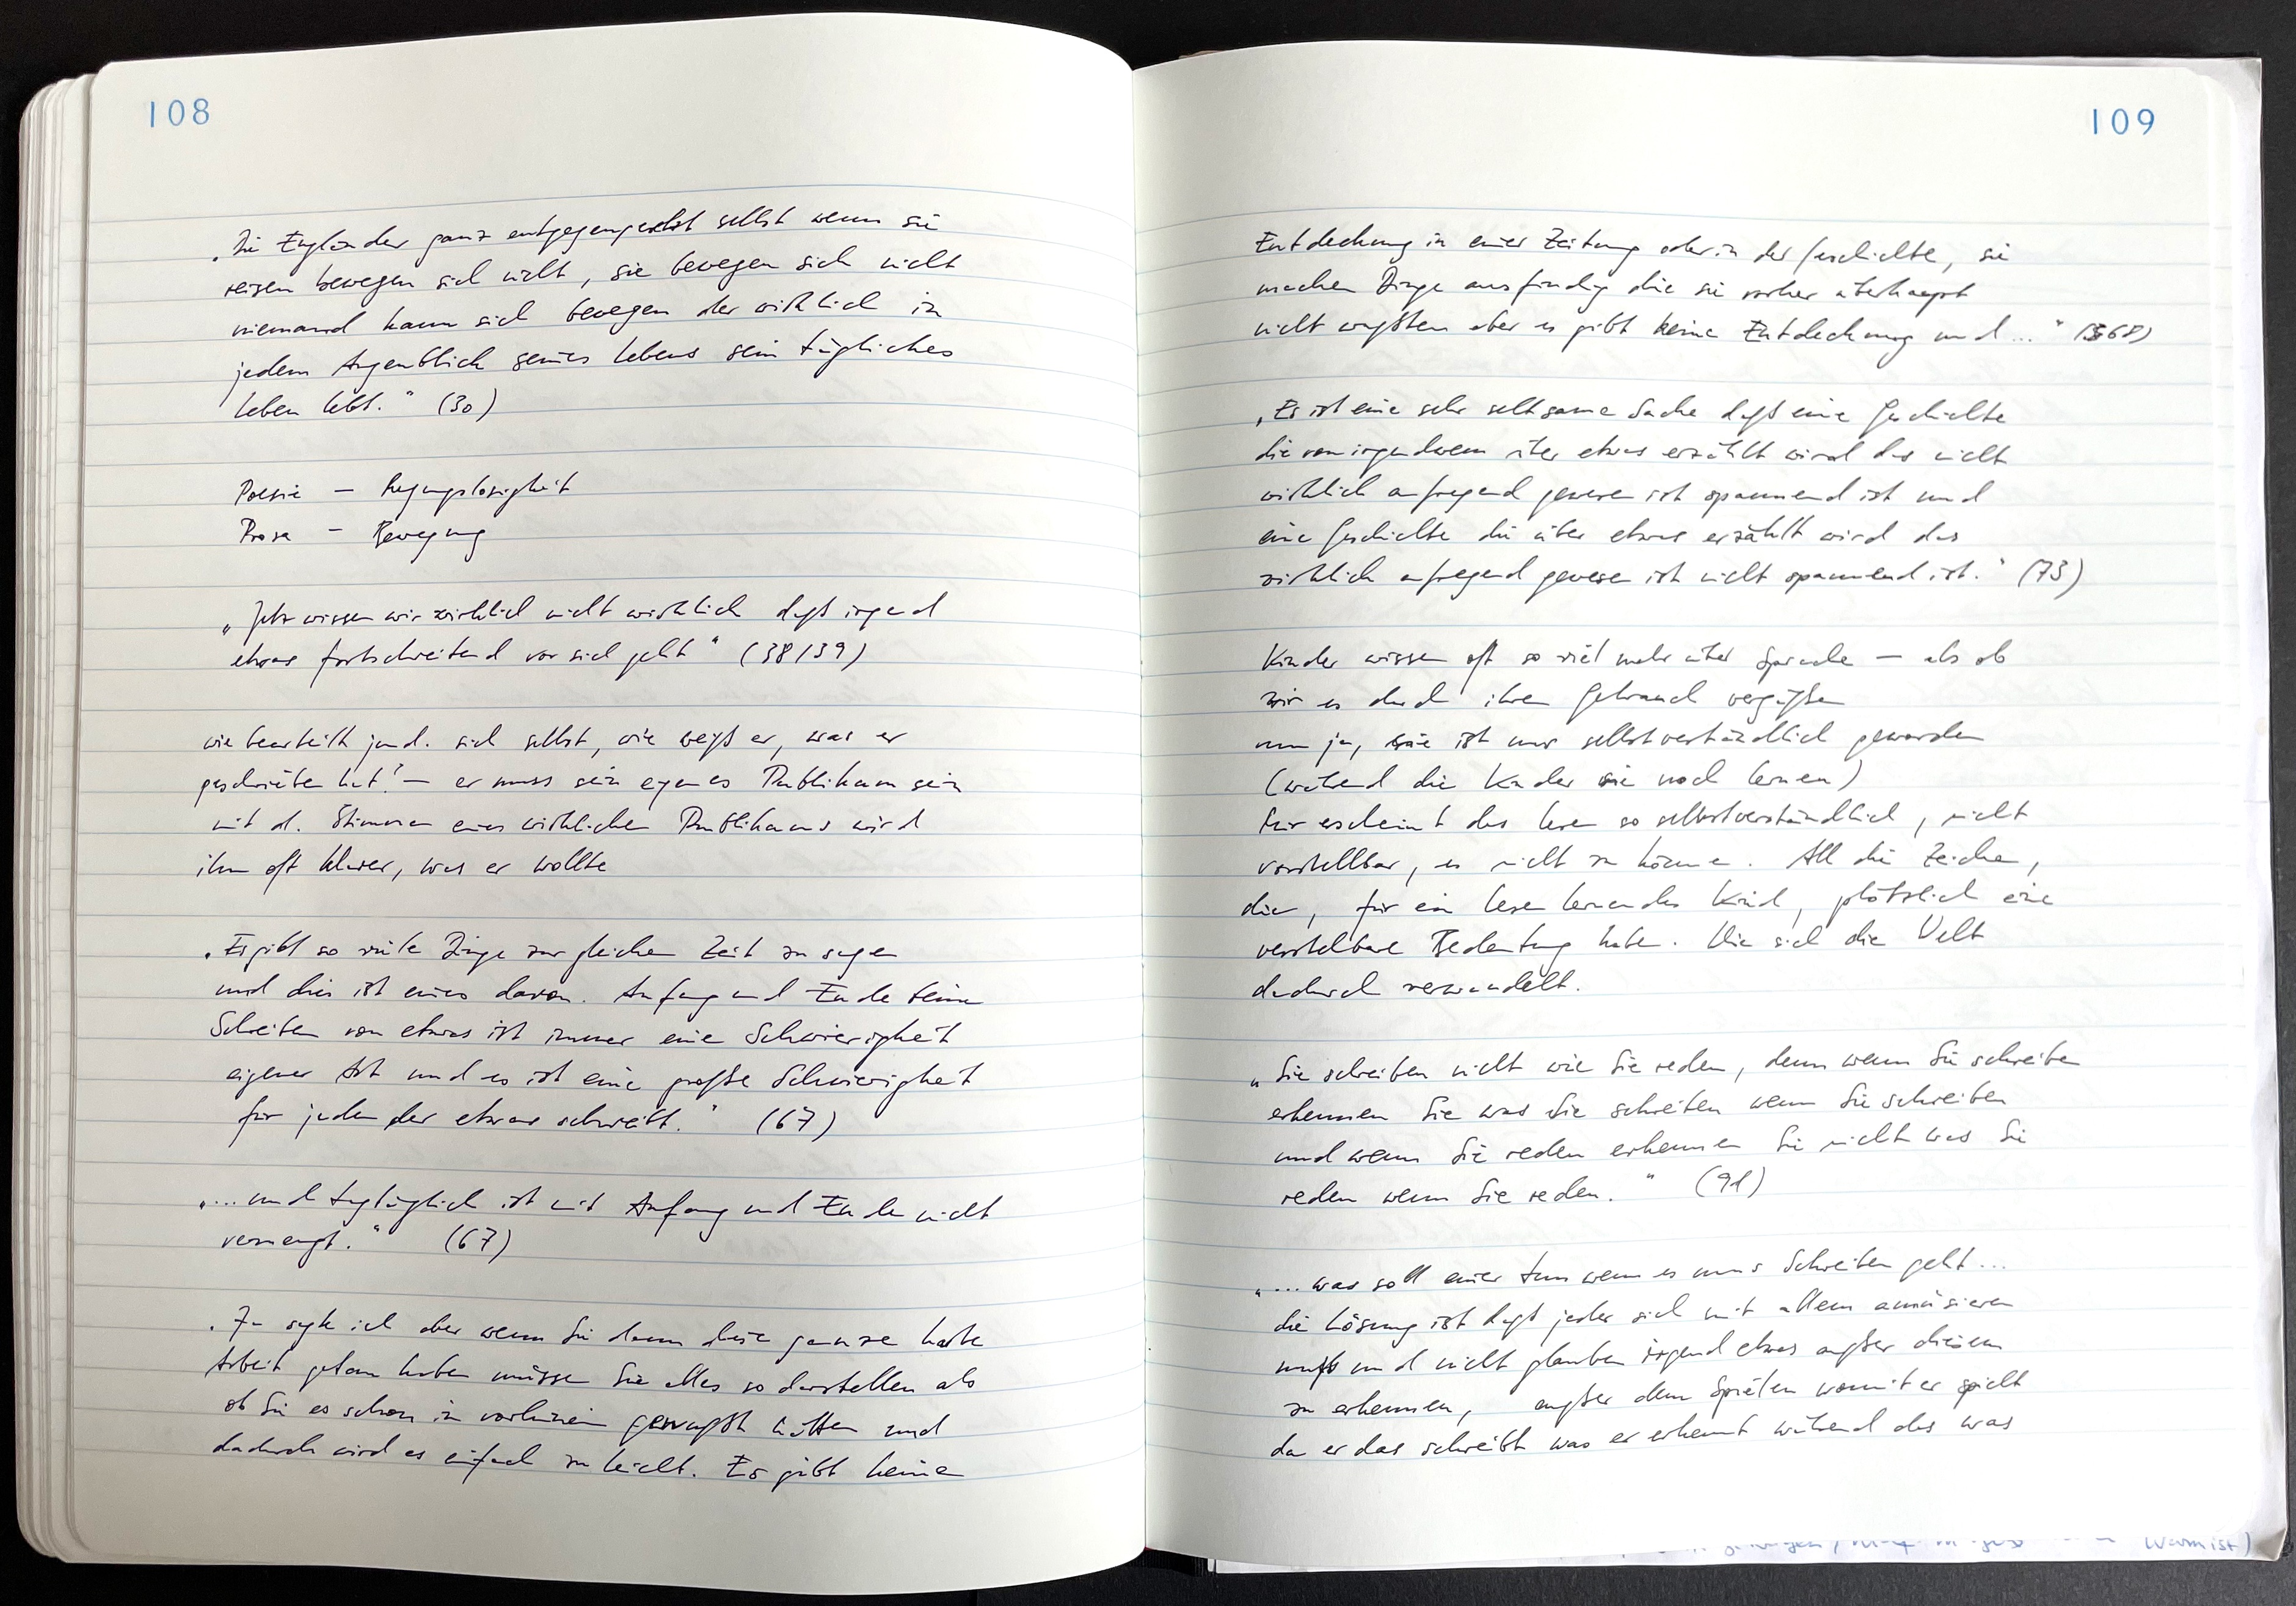 108
„Die Engländer ganz entgegengesetzt selbst wenn sie
reisen bewegen sich nicht, sie bewegen sich nicht
niemand kann sich bewegen der wirklich in
jedem Augenblick seines Lebens sein tägliches
Leben lebt." (30)
Poesie – Regungslosigkeit
Prosa – Bewegung
„Jetzt wissen wir wirklich nicht wirklich daß irgend
etwas fortschreitend vor sich geht" (38/39)
wie beurteilt jmd. sich selbst, wie weiß er, was er
geschrieben hat? – er muss sein eigenes Publikum sein
mit d. Stimmen eines wirklichen Publikums wird
ihm oft klarer, was er wollte
„Es gibt so viele Dinge zur gleichen Zeit zu sagen
und dies ist eines davon. Anfang und Ende beim
Schreiben von etwas ist immer eine Schwierigkeit
eigener Art und es ist eine große Schwierigkeit
für jeden der etwas schreibt." (67)
„... und tagtäglich ist mit Anfang und Ende nicht
vermengt." (67)
„Ja sagte ich aber wenn Sie dann diese ganze harte
Arbeit getan haben müssen Sie alles so darstellen als
ob Sie es schon im vorhinein gewußt hätten und
dadurch wird es einfach zu leicht. Es gibt keine
109
Entdeckung in einer Zeitung oder in der Geschichte, sie
machen Dinge ausfindig die sie vorher überhaupt
nicht wußten aber es gibt keine Entdeckung und ..." (68)
„Es ist eine sehr seltsame Sache daß eine Geschichte
die von irgendwem über etwas erzählt wird das nicht
wirklich aufregend gewesen ist spannend ist und
eine Geschichte die über etwas erzählt wird das
wirklich aufregend gewesen ist nicht spannend ist." (73)
Kinder wissen oft so viel mehr über Sprache – als ob
wir es durch ihren Gebrauch vergäßen
nun ja, sie ist nur selbstverständlich geworden
(während die Kinder sie noch lernen)
Mir erscheint das Lesen so selbstverständlich, nicht
vorstellbar, es nicht zu können. All die Zeichen,
die, für ein lesen lernendes Kind, plötzlich eine
verstehbare Bedeutung haben. Wie sich die Welt
dadurch verwandelt.
„Sie schreiben nicht wie Sie reden, denn wenn Sie schreiben
erkennen Sie was Sie schreiben wenn Sie schreiben
und wenn Sie reden erkennen Sie nicht was Sie
reden wenn Sie reden." (91)
„... was soll einer tun wenn es ums Schreiben geht ...
die Lösung ist daß jeder sich mit allem amüsieren
muß und nicht glauben irgend etwas außer diesem
zu erkennen, außer dem Spielen womit er spielt
da er das schreibt was er erkennt während das was
warm ist)